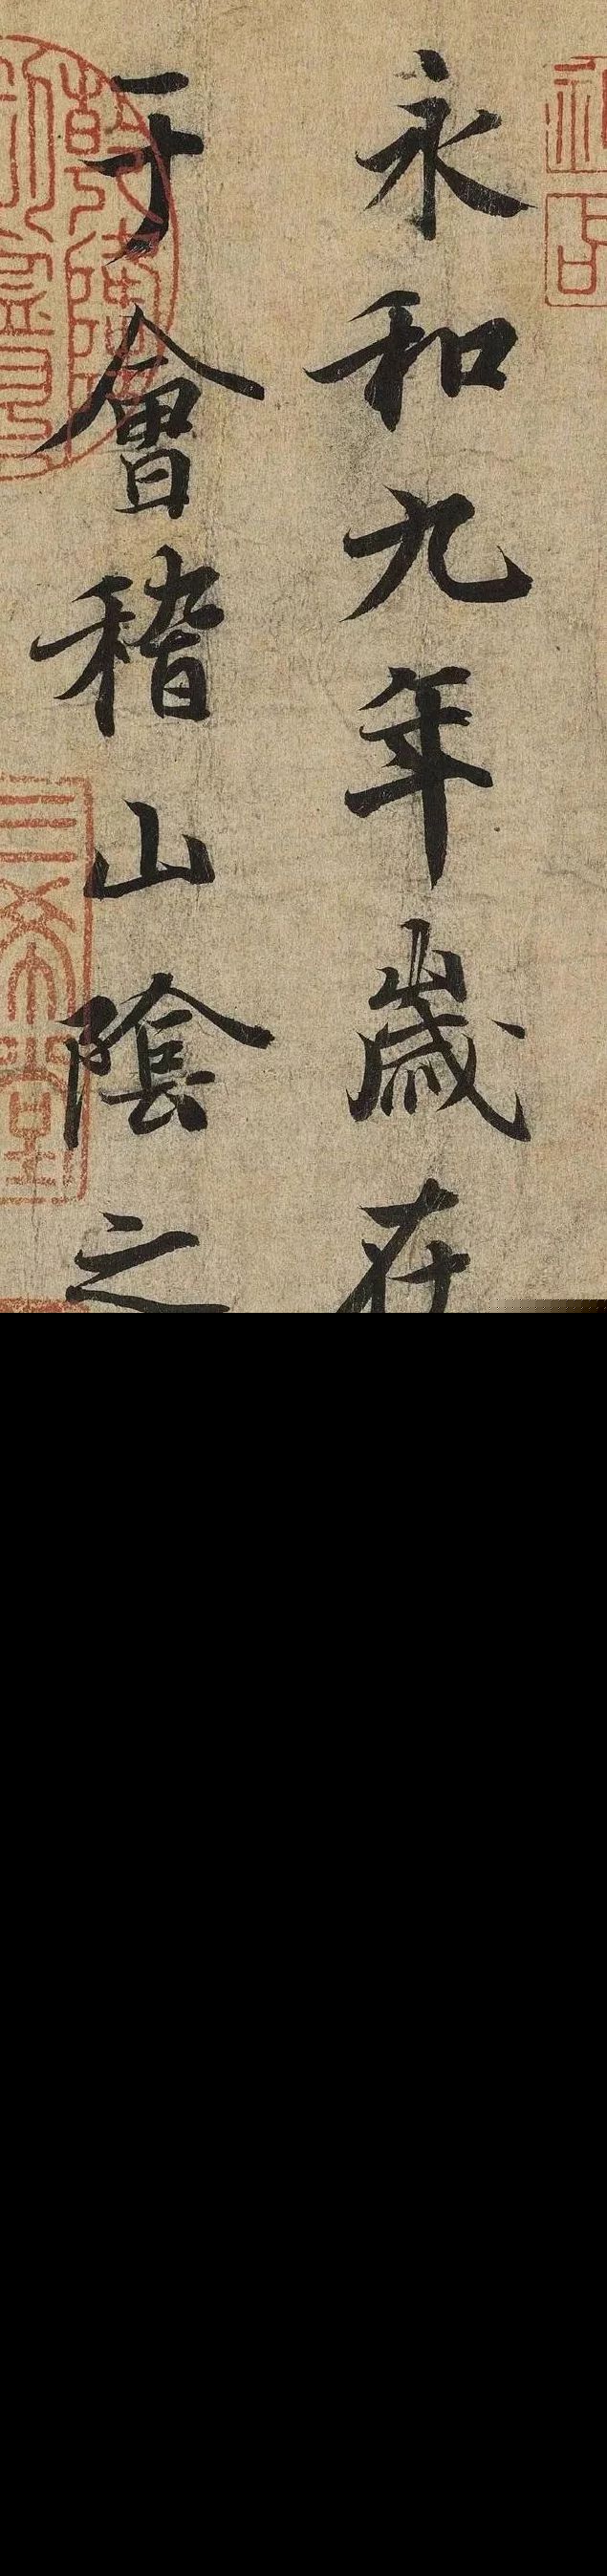 永和九年歲在
于會稽山陰之
三希堂